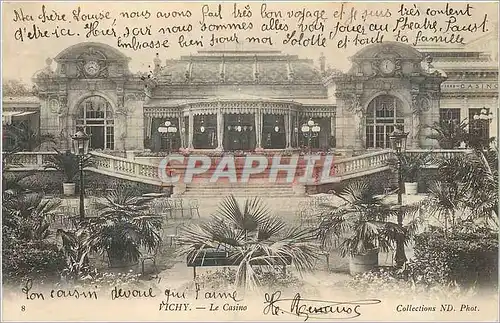 Ma chère Louise, nous avons fait très bon voyage et je suis très content
d'être ici. Hier soir nous sommes allés, voir jouer au Théatre, Faust.
Embrasse bien pour moi Lolotte et toute ta famille
CASINO
CPARAMA.COM
Ton cousin dévoué qui t'aime
8 VICHY. — Le Casino Collections ND. Phot.